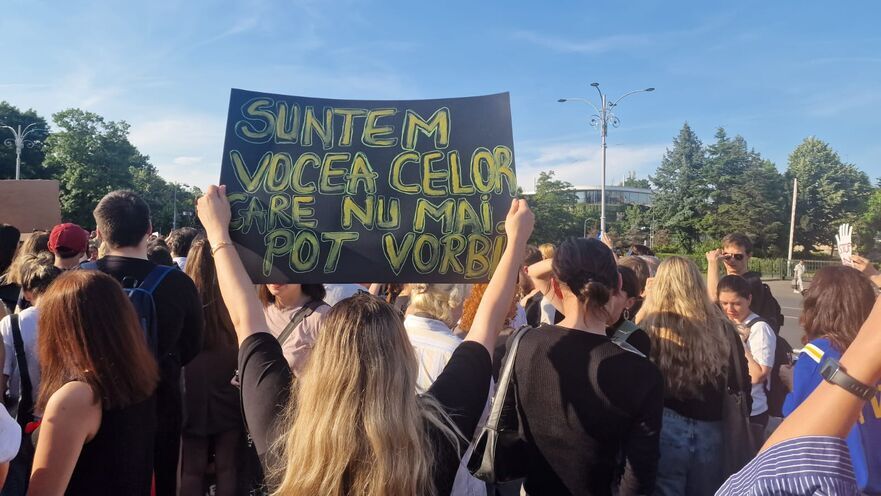 SUNTEM
VOCEA CELOR
CARE NU MAI
POT VORBI